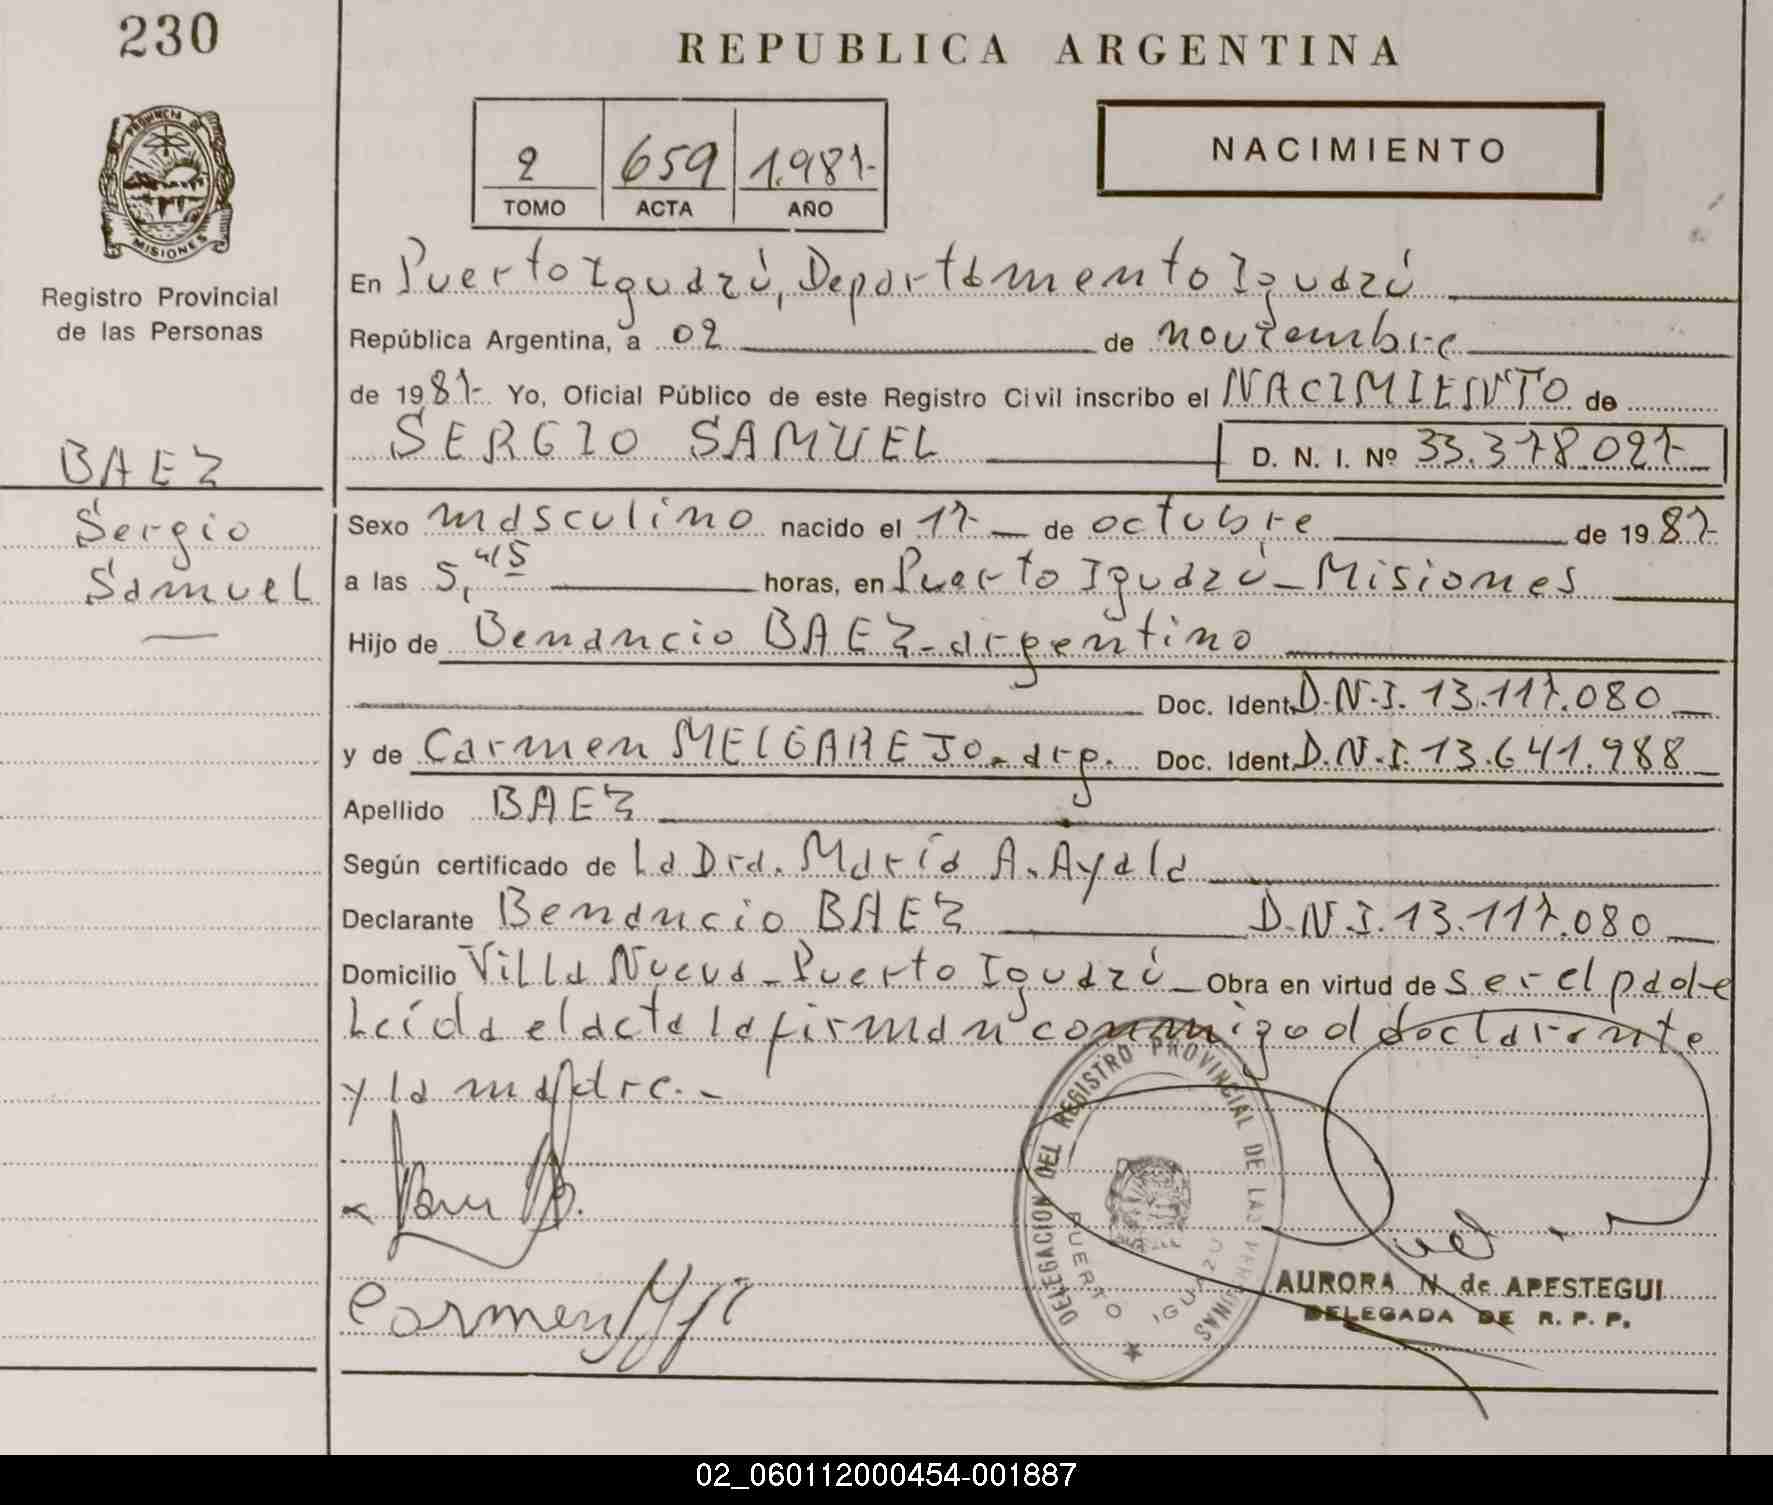 230
REPUBLICA ARGENTINA
PROVINCIA DE
MISIONES
Registro Provincial
de las Personas
2 659 1.987-
TOMO ACTA AÑO
NACIMIENTO
En Puerto Iguazú, Departamento Iguazú
República Argentina, a 02 de noviembre
de 1987- Yo, Oficial Público de este Registro Civil inscribo el NACIMIENTO de
SERGIO SAMUEL D. N. I. Nº 33.378.027-
BAEZ
Sergio
Samuel
Sexo masculino nacido el 17- de octubre de 1987-
a las 5,45 horas, en Puerto Iguazú - Misiones
Hijo de Benancio BAEZ - argentino
Doc. Ident. D.N.I. 13.117.080
y de Carmen MELGAREJO - arg. Doc. Ident. D.N.I. 13.641.988
Apellido BAEZ
Según certificado de La Dra. María A. Ayala
Declarante Benancio BAEZ D.N.I. 13.117.080
Domicilio Villa Nueva - Puerto Iguazú - Obra en virtud de ser el padre
Leída el acta la firman conmigo el declarante
y la madre. -
Carmen
DELEGACION DEL REGISTRO PROVINCIAL DE LAS PERSONAS
PUERTO IGUAZU
AURORA N. de APESTEGUI
DELEGADA DE R. P. P.
02_060112000454-001887